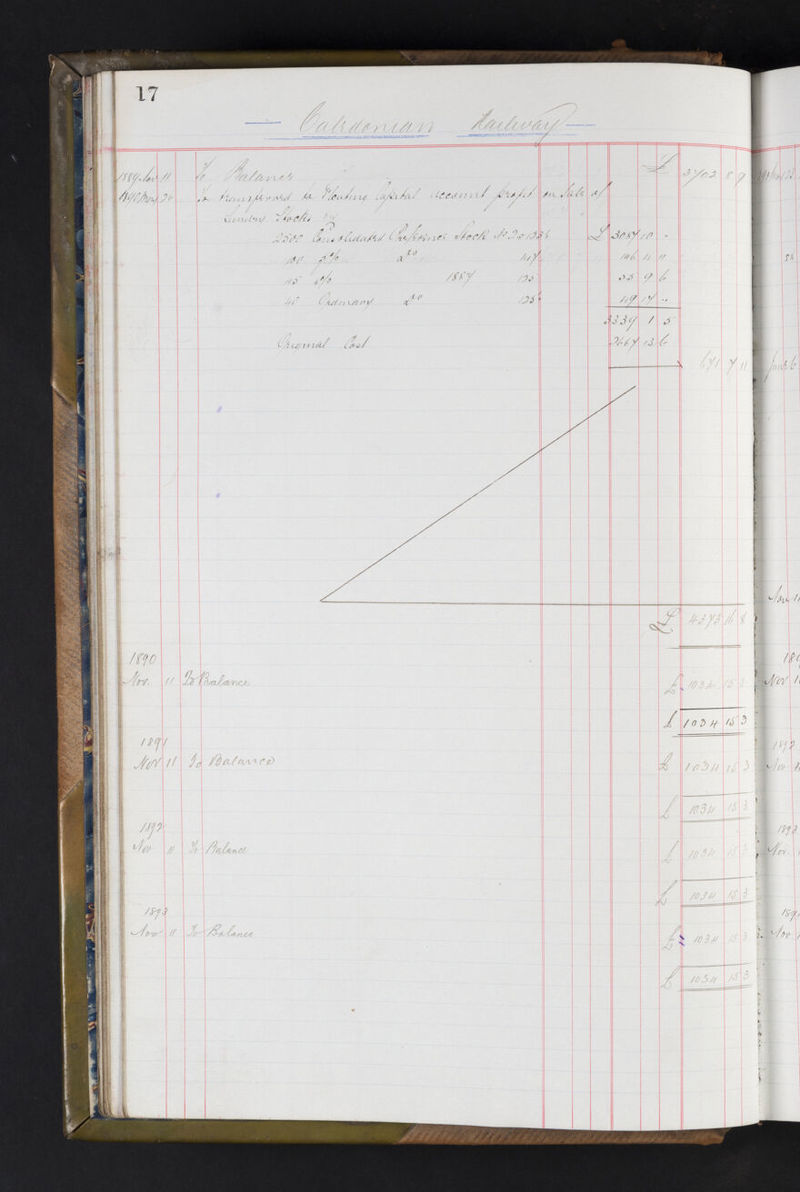 17
Caledonian Railway
1889 Nov 11 To Balance £ 3702 8 9
1890 May 20 To transferred to Floating Capital account profit on Sale of
Sundry Stocks
2500 Consolidated Preference Stock £ 3087 10 -
100 do 146 11 11
1884 135 55 9 6
40 Ordinary do 49 17 ..
3339 1 5
Original Cost 2667 13 6
671 7 11
£ 4373 16 8
1890
Nov. 11 To Balance £ 1034 15 3
£ 1034 15 3
1891
Nov 11 To Balance £ 1034 15 3
£ 1034 15 3
1892
Nov 11 To Balance £ 1034 15 3
£ 1034 15 3
1893
Nov 11 To Balance £ 1034 15 3
£ 1034 15 3